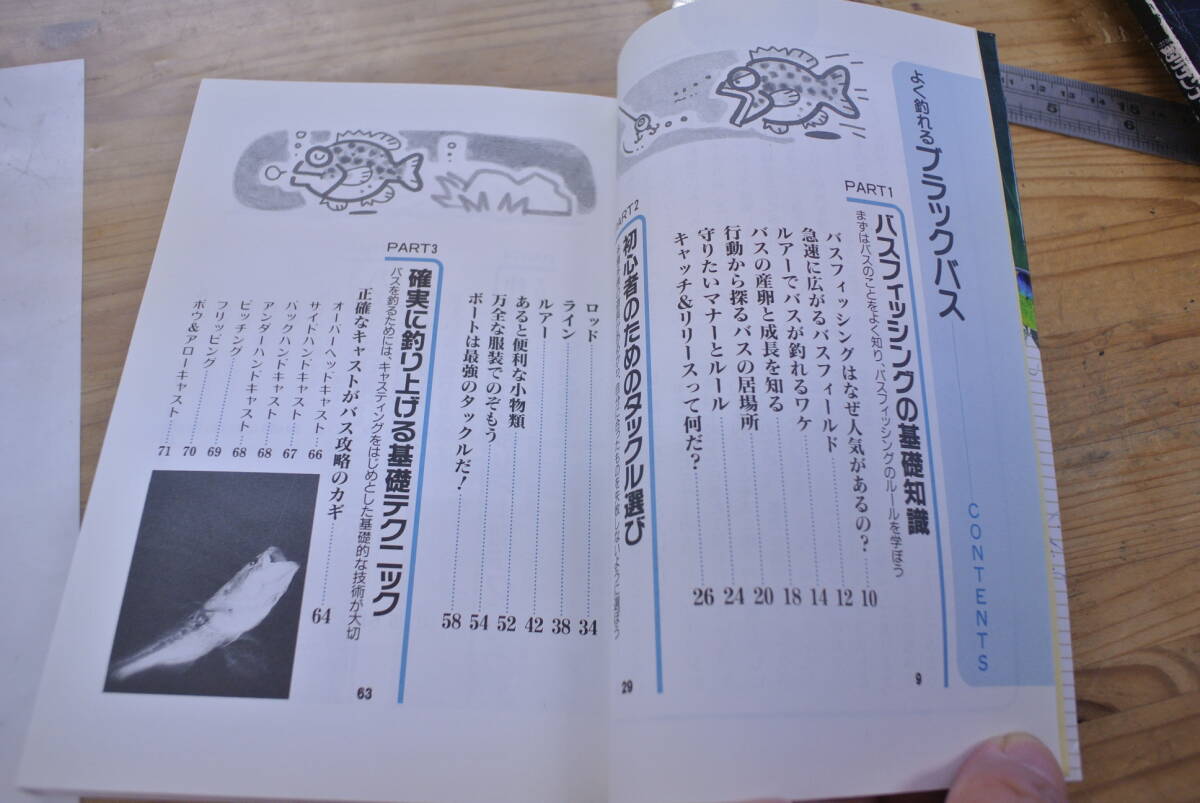 よく釣れるブラックバス
CONTENTS
PART1
バスフィッシングの基礎知識
9
まずはバスのことをよく知り、バスフィッシングのルールを学ぼう
バスフィッシングはなぜ人気があるの？ 10
急速に広がるバスフィールド 12
ルアーでバスが釣れるワケ 14
バスの産卵と成長を知る 18
行動から探るバスの居場所 20
守りたいマナーとルール 24
キャッチ&リリースって何だ？ 26
PART2
初心者のためのタックル選び
29
ロッド 34
ライン 38
ルアー 42
あると便利な小物類 52
万全な服装でのぞもう 54
ボートは最強のタックルだ！ 58
PART3
確実に釣り上げる基礎テクニック
63
バスを釣るためには、キャスティングをはじめとした基礎的な技術が大切
正確なキャストがバス攻略のカギ 64
オーバーヘッドキャスト 66
サイドハンドキャスト 67
バックハンドキャスト 68
アンダーハンドキャスト 68
ピッチング 69
フリッピング 70
ボウ&アローキャスト 71